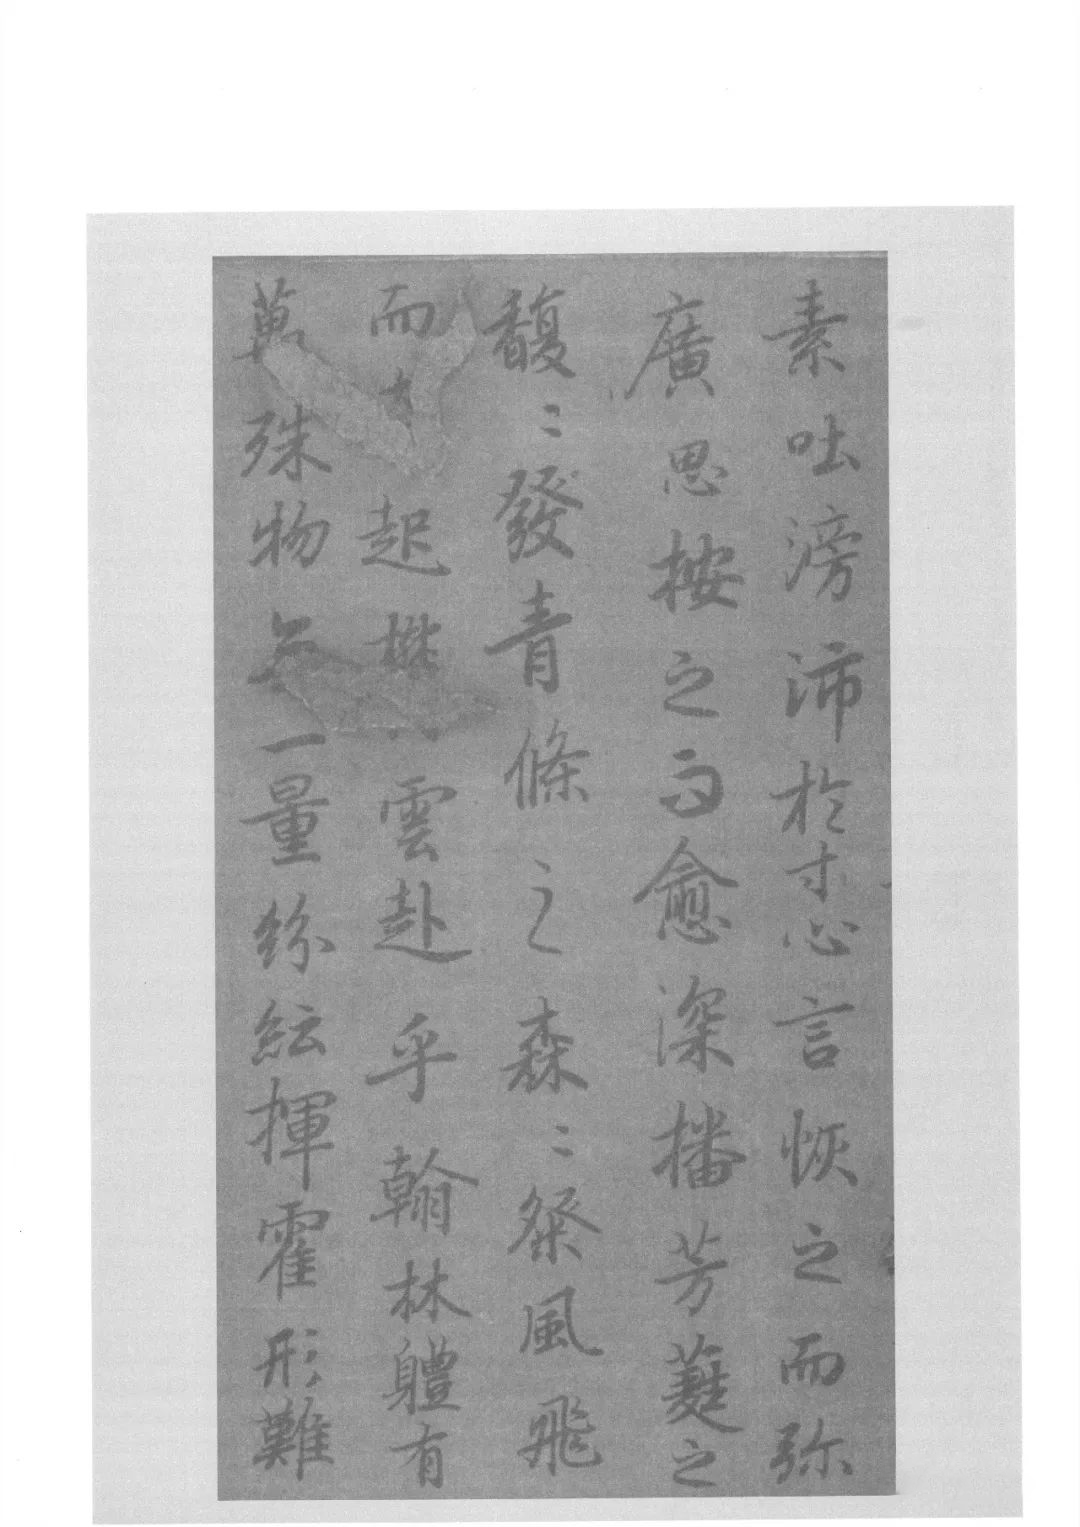 素吐滂沛於寸心言恢之而弥
廣思按之而愈深播芳蕤之
馥〻發青條之森〻粲風飛
而起雲赴乎翰林軆有
萬殊物无一量紛紜揮霍形難